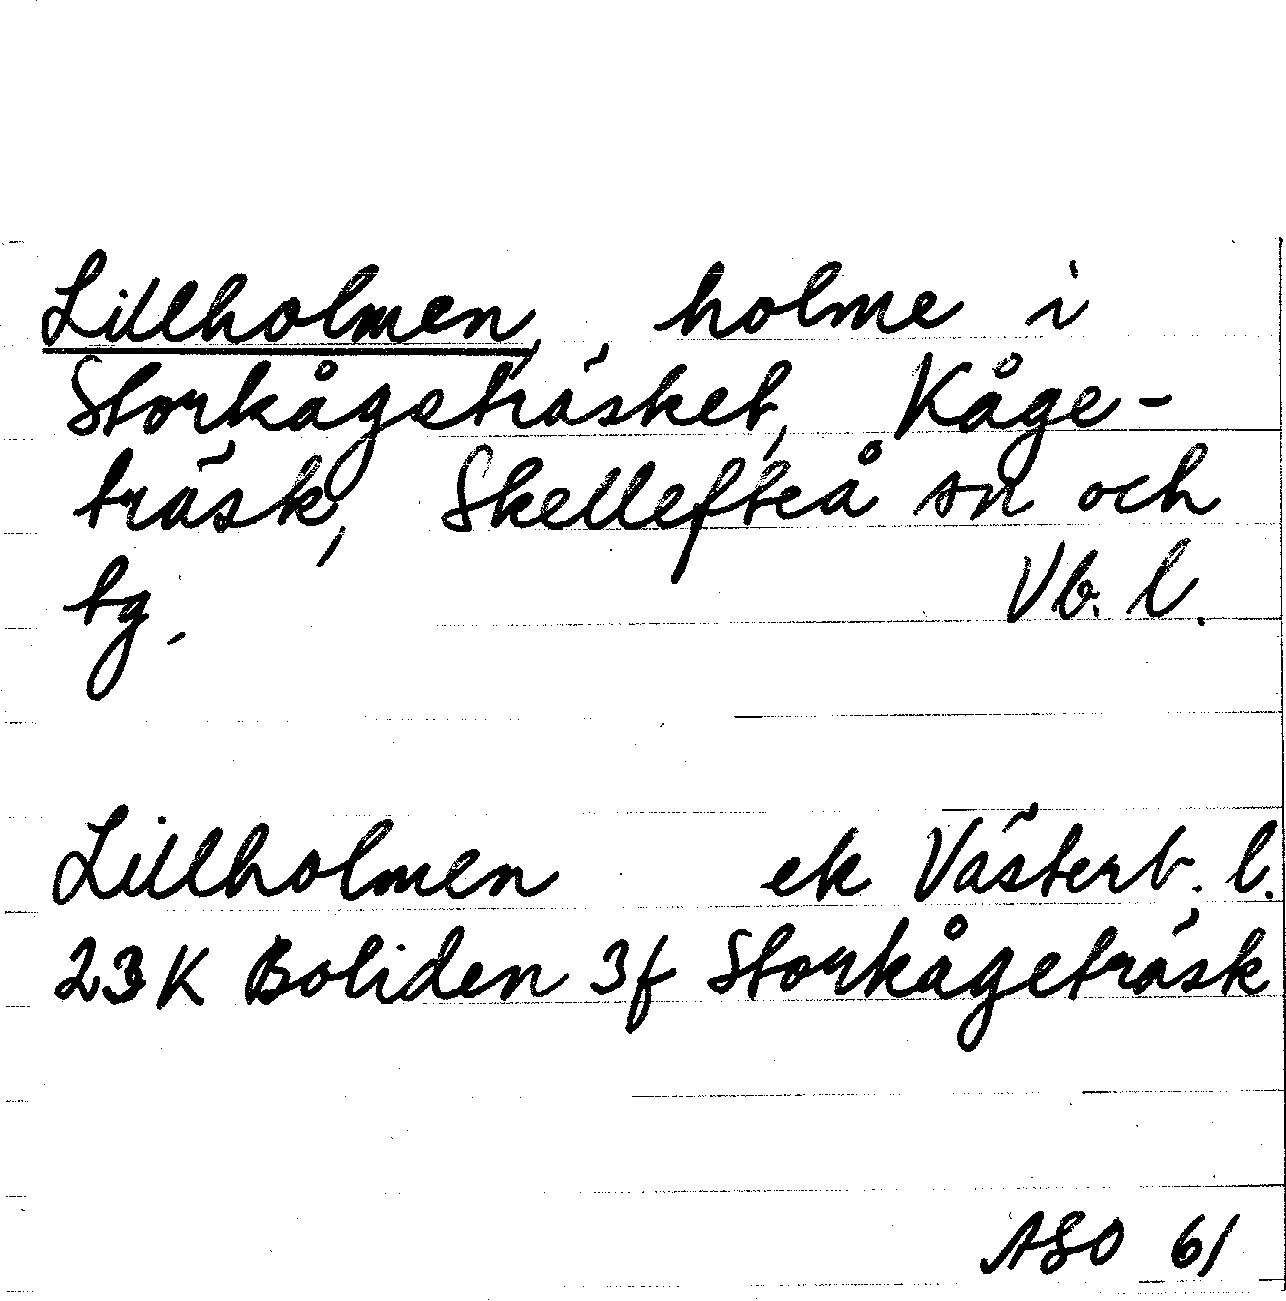 Lillholmen, holme i
Storkågeträsket, Kåge-
träsk, Skellefteå sn och
tg. Vb. l.
Lillholmen ek Västerb. l.
23K Boliden 3f Storkågeträsk
ASO 61